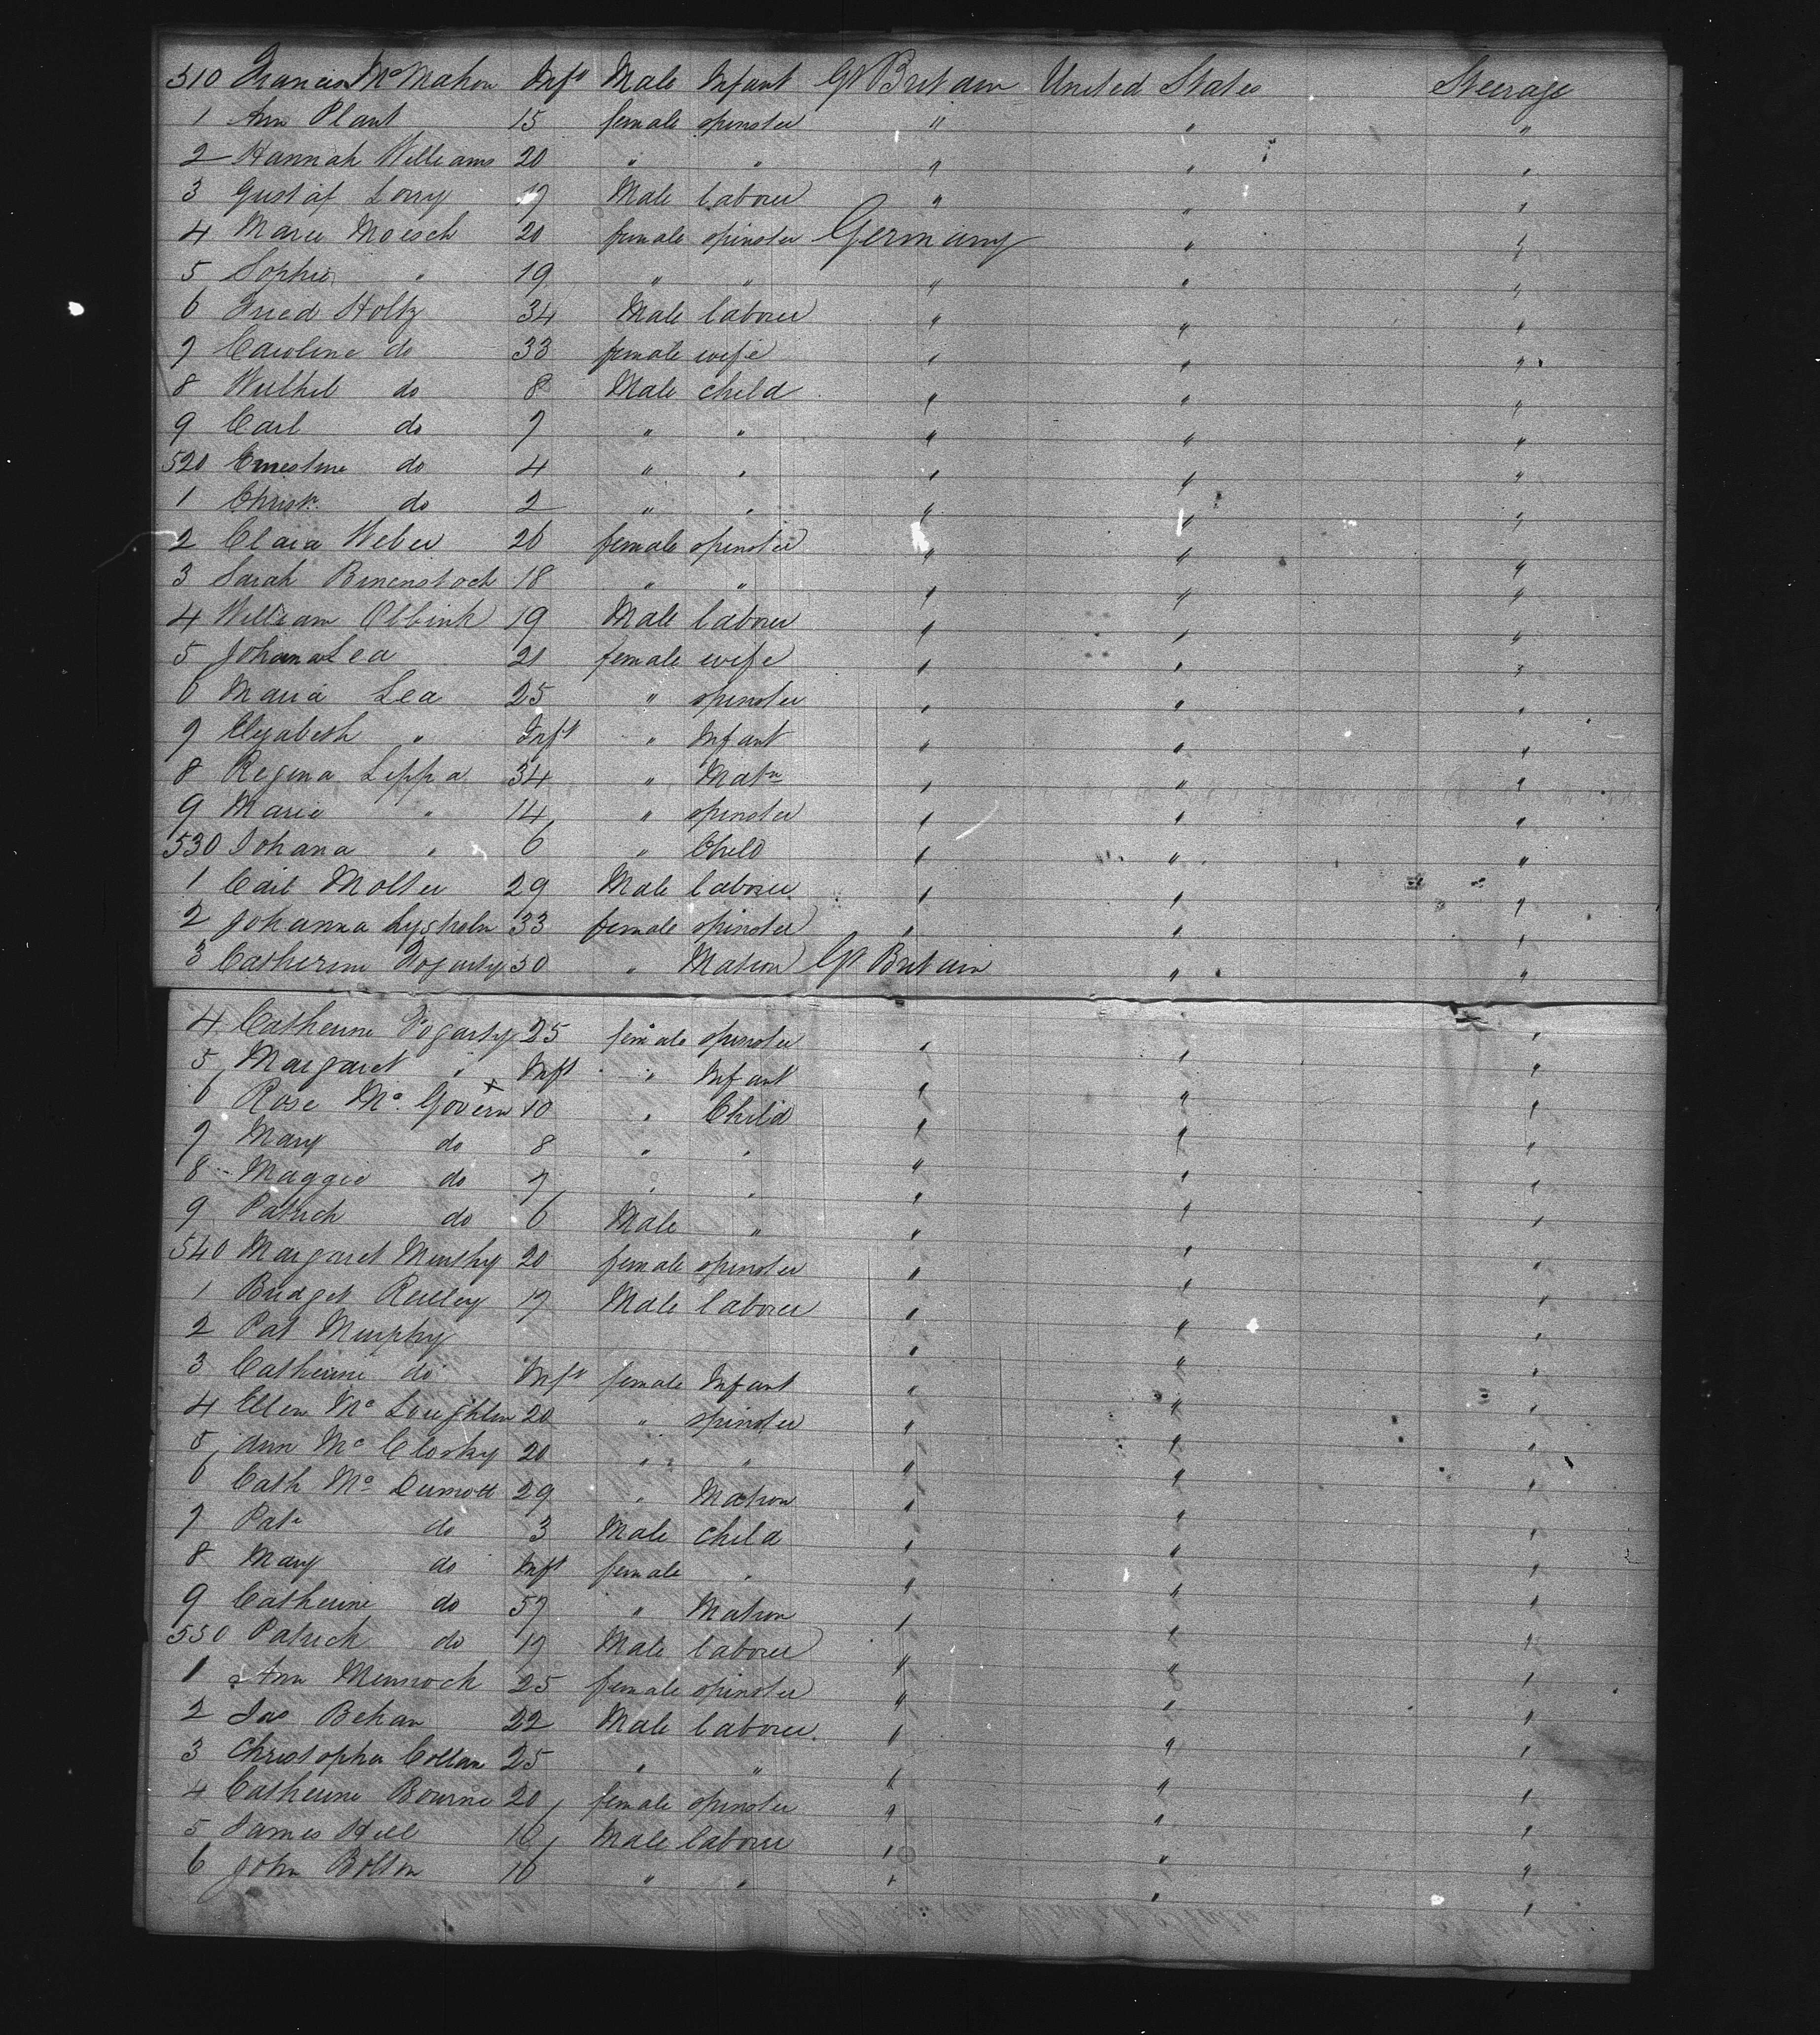 510 Francis McMahon Inft Male Infant Gt Britain United States Steerage
1 Ann Plant 15 female spinster " " "
2 Hannah Williams 20 " " " " "
3 Gustaf Lorry 17 Male laborer " " "
4 Marie Moesch 20 female spinster Germany " "
5 Sophie " 19 " " " " "
6 Fried Holtz 34 Male laborer " " "
7 Caroline do 33 female wife " " "
8 Wilhel do 8 Male child " " "
9 Carl do 7 " " " " "
520 Ernestine do 4 " " " " "
1 Christn do 2 " " " " "
2 Clara Weber 26 female spinster " " "
3 Sarah Binenstock 18 " " " " "
4 William Obbink 19 Male laborer " " "
5 Johana Lea 21 female wife " " "
6 Maria Lea 25 " spinster " " "
7 Elizabeth " Inft " Infant " " "
8 Regina Leppa 34 " Matn " " "
9 Marie " 14 " spinster " " "
530 Johana " 6 " Child " " "
1 Carl Molter 29 Male laborer " " "
2 Johanna Lysholm 33 female spinster " " "
3 Catherine Fogarty 50 " Matron Gt Britain " "
4 Catherine Fogarty 25 female spinster " " "
5 Margaret " Inft " Infant " " "
6 Rose Mc Govern 10 " Child " " "
7 Mary do 8 " " " " "
8 Maggie do 7 " " " " "
9 Patrick do 6 Male " " " "
540 Margaret Murthy 20 female spinster " " "
1 Bridget Reilley 17 Male laborer " " "
2 Pat Murphy " " "
3 Catherine do Inft female Infant " " "
4 Ellen Mc Loughlin 20 " spinster " " "
5 Ann Mc Closky 20 " " " " "
6 Cath Mc Dermott 29 " Matron " " "
7 Pat do 3 Male child " " "
8 Mary do Inft female " " " "
9 Catherine do 57 " Matron " " "
550 Patrick do 17 Male laborer " " "
1 Ann Murnock 25 female spinster " " "
2 Jas Behan 22 Male laborer " " "
3 Christopher Collan 25 " " " " "
4 Catherine Bourne 20 female spinster " " "
5 James Hill Male laborer " " "
6 John Bolton 16 " " " " "